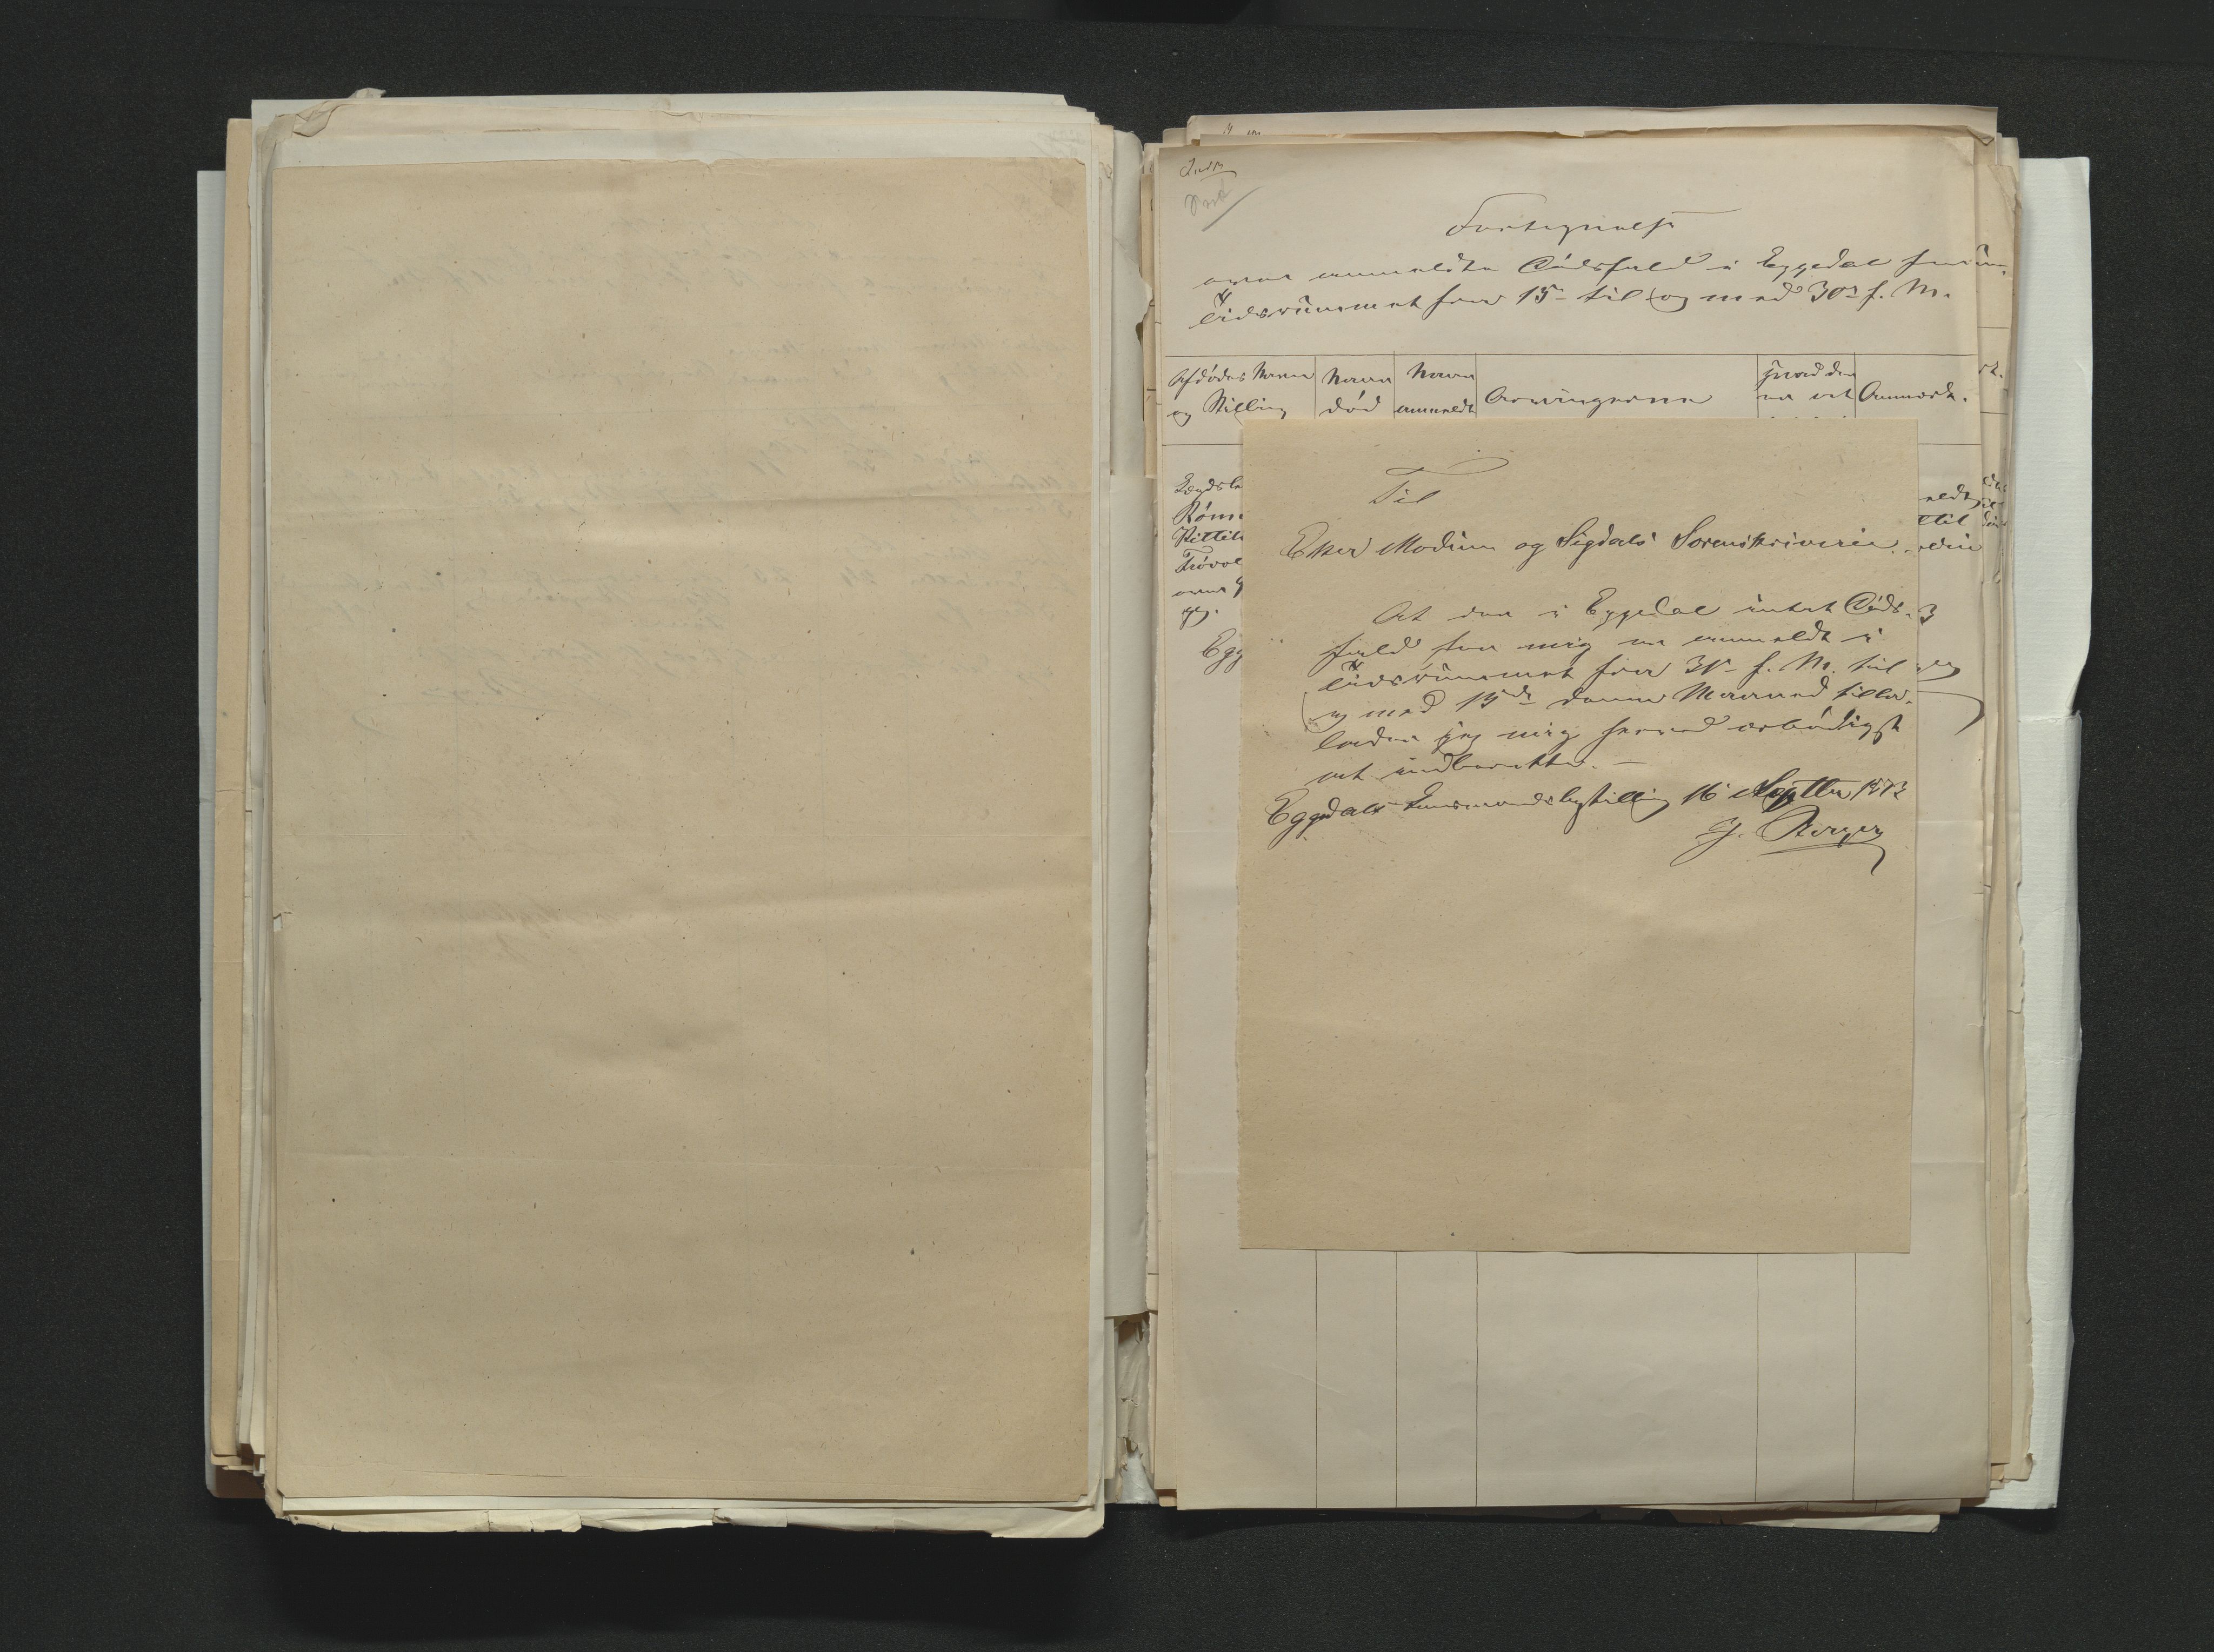 Fortegnelse
over anmeldte Dødsfald i Eggedal for
Tidsrummet fra 15de til og med 30te f. M.
Afdødes Navn
og Stilling
Naar
død
Naar
anmeldt
Arvingerne
Hvad der
er at
Anmærk.
Lægdsle
Rønn
Kittils
Egg
Til
Eker Modum og Sigdals Sorenskriveri.
At der i Eggedal intet Døds-
fald for mig er anmeldt i
Tidsrummet fra 31te f. M. til
og med 15de denne Maaned tilla-
lader jeg mig herved ærbødigst
at indberette. —
Eggedals Lensmandsbestilling 16 Septbr 1873
J. Berger